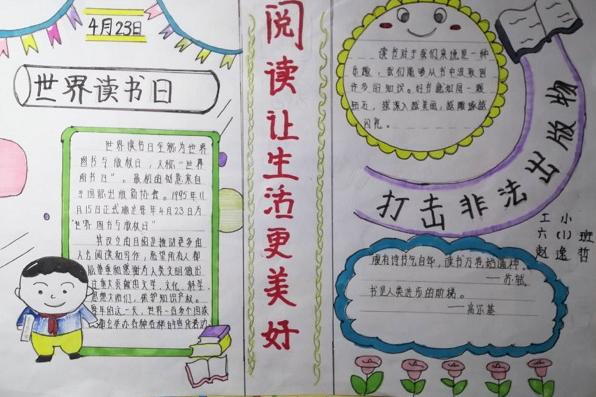 4月23日
世界读书日
世界读书日全称为世界
图书与版权日，又称"世界
图书日"。最初的创意来自
于国际出版商协会。1995年11
月15日正式确定每年4月23日为
"世界图书与版权日"
其设立目的是推动更多的
人去阅读和写作，希望所有人都
能尊重和感谢为人类文明做出
过重大贡献的文学、文化、科学、
思想大师们，保护知识产权。
每年的这一天，世界一百多个国家
都会举办各种各样的庆祝活动
阅读让生活更美好
读书对于我们来说是一种
乐趣，我们能够从书中汲取到
许多的知识。好书就如同一颗
钻石，越深入越美丽，越雕琢越
闪亮。
打击非法出版物
工小
六(1)班
赵逸哲
腹有诗书气自华，读书万卷始通神。
——苏轼
书是人类进步的阶梯。
——高尔基